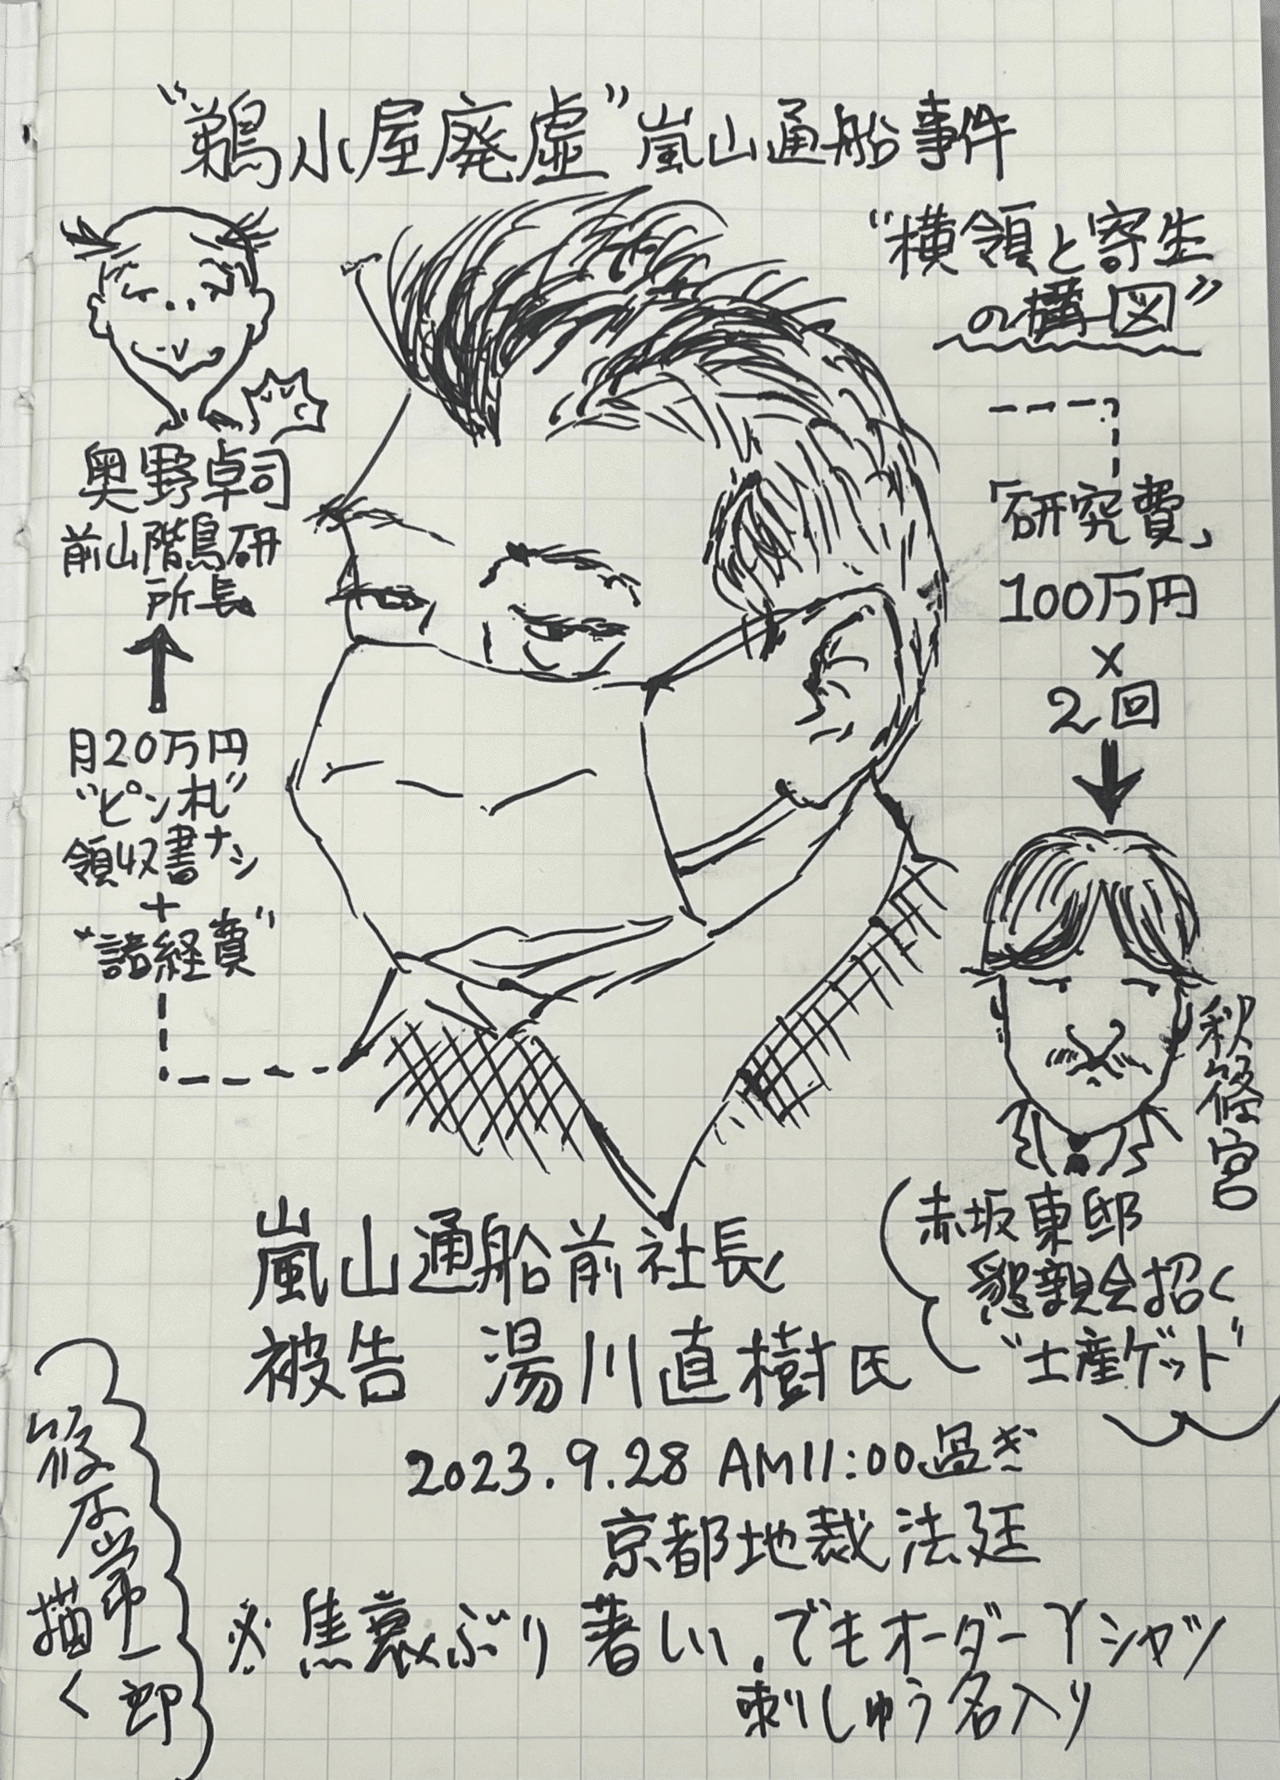 “鵜小屋廃虚”嵐山通船事件
“横領と寄生
の構図”
奥野卓司
前山階鳥研
所長
月20万円
“ピン札”
領収書ナシ
+
“諸経費”
「研究費」
100万円
×
2回
秋篠宮
赤坂東邸
懇親会招く
“土産ゲット”
嵐山通船前社長
被告 湯川直樹氏
2023.9.28 AM11:00過ぎ
京都地裁法廷
※焦衰ぶり著しい。でもオーダーYシャツ
刺しゅう名入り
篠原常一郎
描く